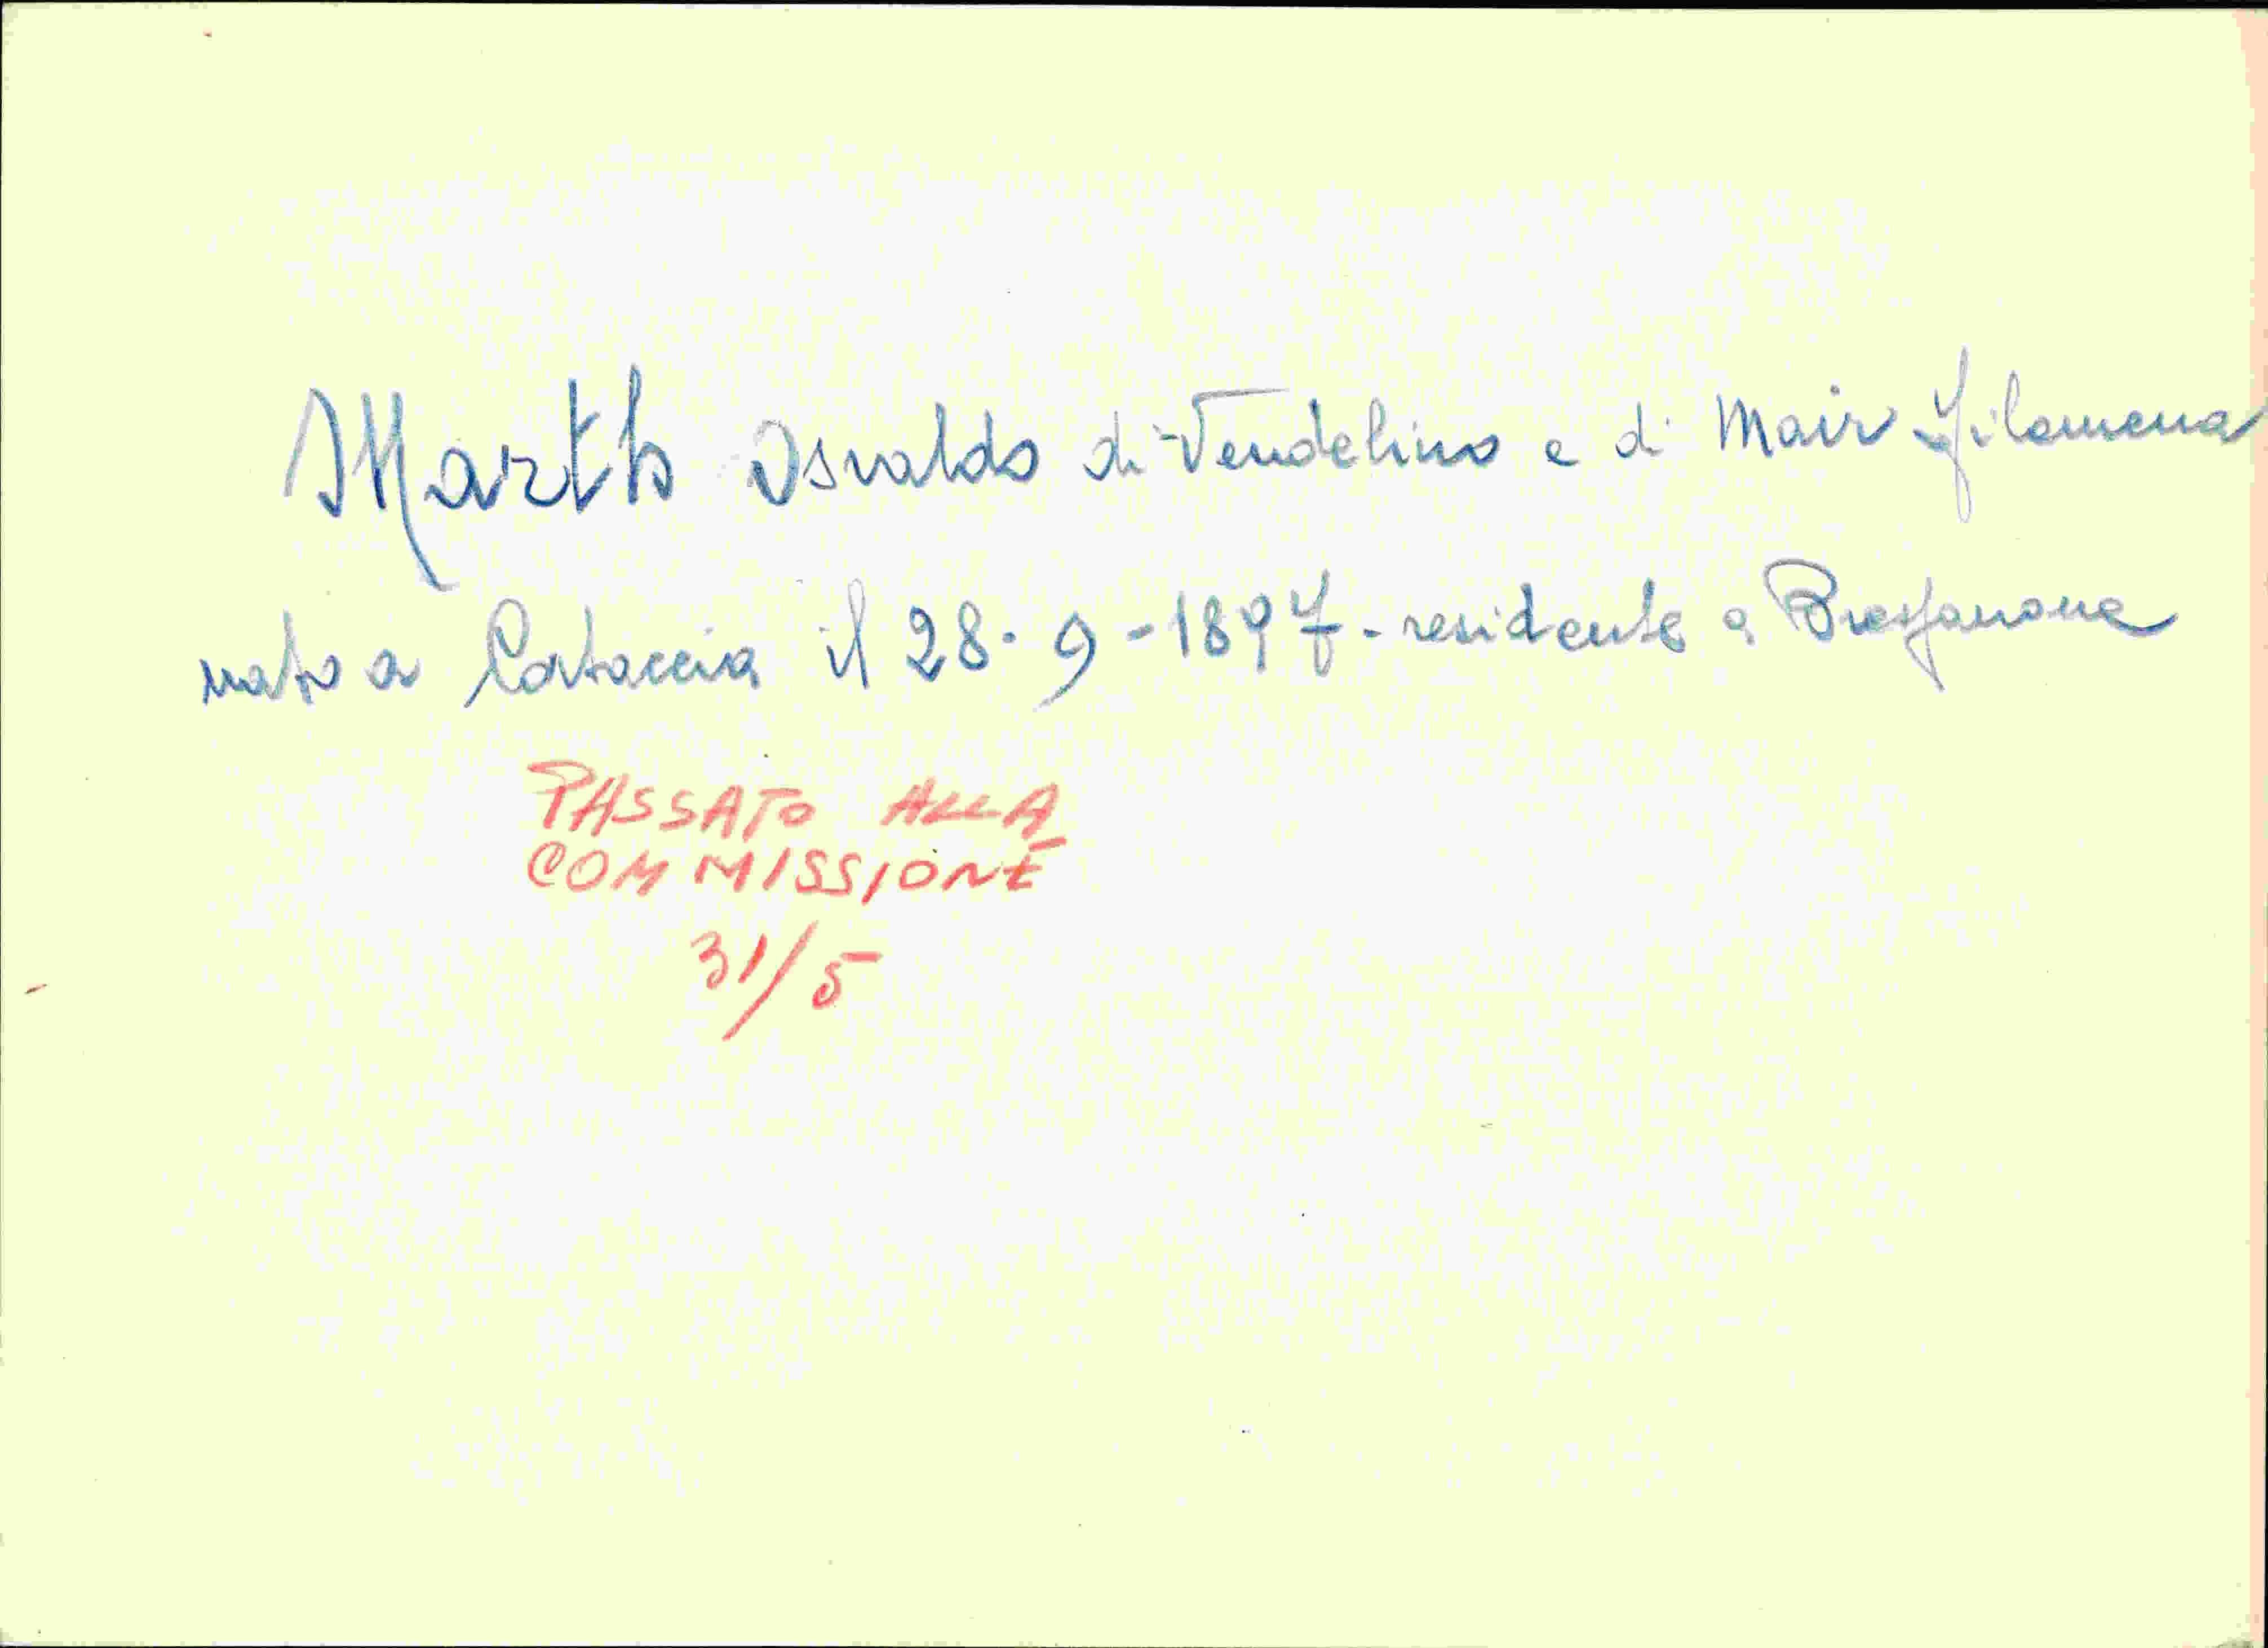 Marth Osvaldo di Vendelino e di Mair Filomena
nato a Cortaccia il 28-9-1897- residente a Bressanone
PASSATO ALLA
COMMISSIONE
31/5